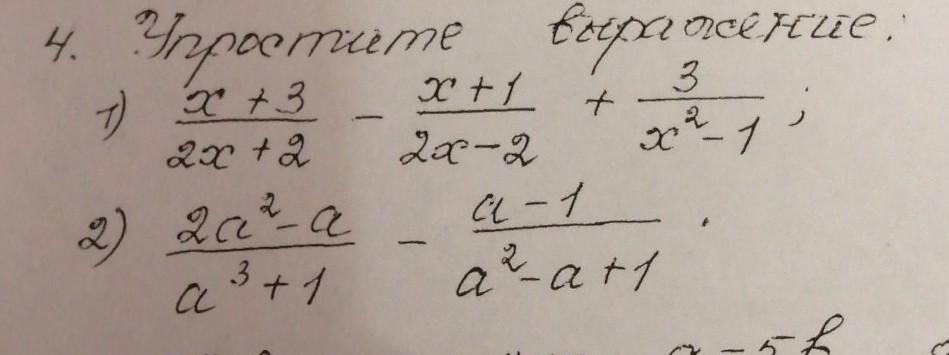 4. Упростите выражение:
1) (x + 3)/(2x + 2) - (x + 1)/(2x - 2) + 3/(x² - 1) ;
2) (2a² - a)/(a³ + 1) - (a - 1)/(a² - a + 1) .
a - 5b